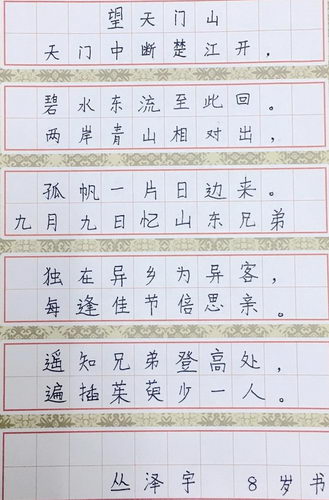 望天门山
天门中断楚江开，
碧水东流至此回。
两岸青山相对出，
孤帆一片日边来。
九月九日忆山东兄弟
独在异乡为异客，
每逢佳节倍思亲。
遥知兄弟登高处，
遍插茱萸少一人。
丛泽宇 8岁书